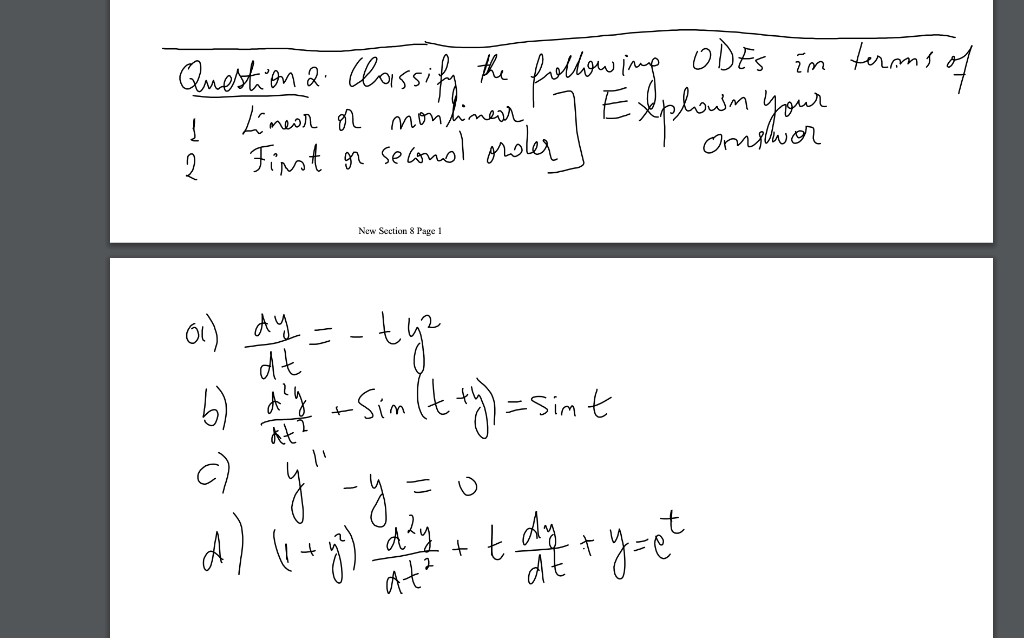 Question 2. Classify the following ODEs in terms of
1 Linear or nonlinear
2 First or second order
Explain your
answer
New Section 8 Page 1
a) dy/dt = - ty²
b) d²y/dt² + Sin(t+y) = sin t
c) y'' - y = 0
d) (1+y²) d²y/dt² + t dy/dt + y = e^t